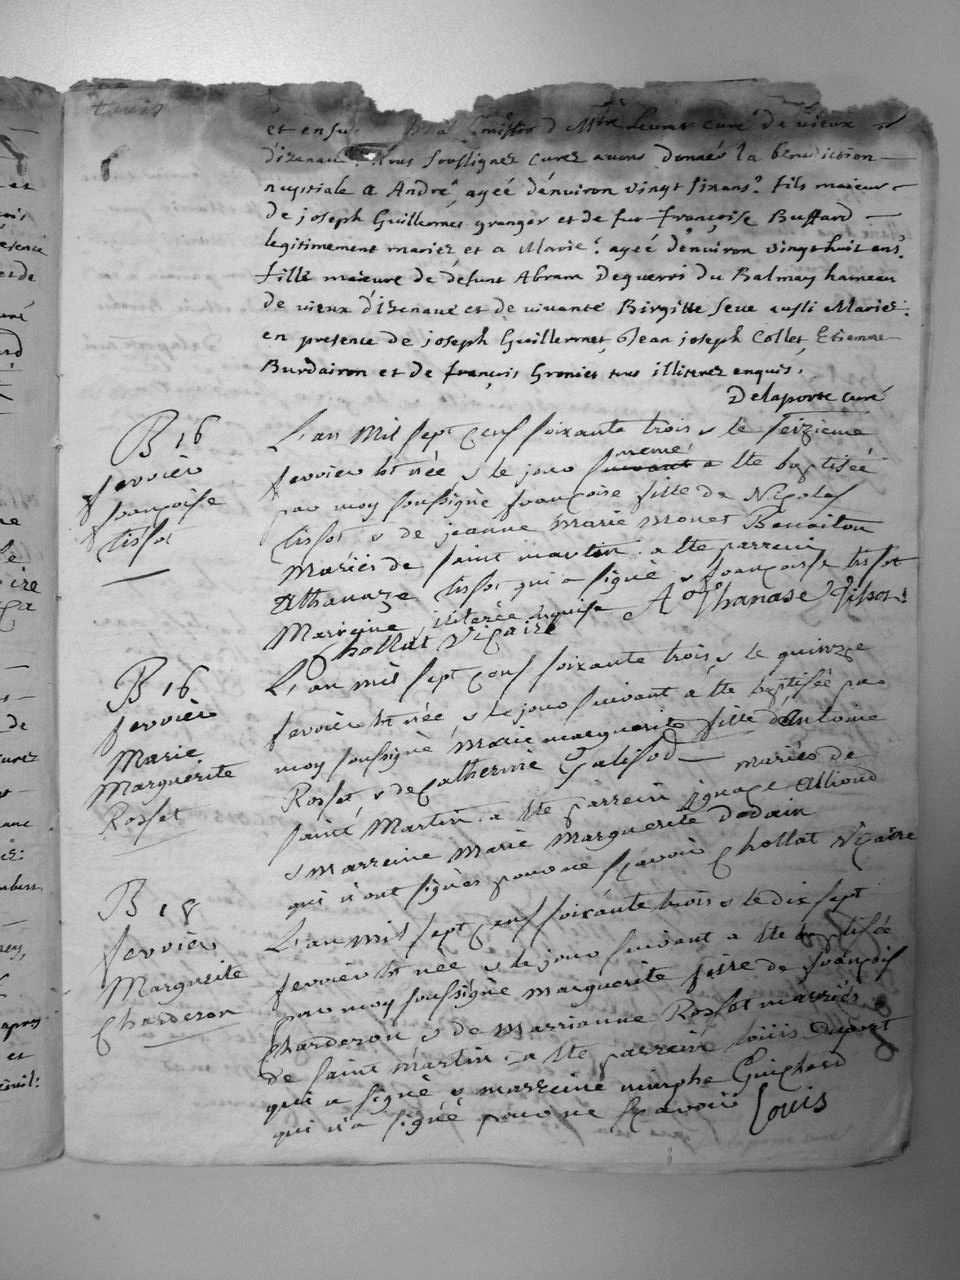 Louis
et ensu Mtre curé de vieux
d'izenave. Nous soussignez curez avons donnés la benediction
nuptiale a André ayeé d'énviron vingt six ans. fils majeur
de joseph Guillermet granger et de feu françoise Buffard
legitimement mariez et a Marie ayeé d'énviron vingthuit ans.
fille majeure de défunt Abram Deguerri du Balmay hameau
de vieux d'izenave et de vivante Birgitte seve aussi Mariez.
en presence de joseph Guillermet, Jean joseph Collet, Etienne
Burdairon et de françois Gronier tous illiterez enquis.
Delaporte curé
B 16
fevrièr
françoise
tissot
L'an mil sept cent soixante trois & le seizieme
fevrier est née & le jour meme
suivant a été baptiséé
par moy soussignè françoise fille de Nicolas
tissot & de jeanne marie monet Benoiton
mariés de saint martin. a été parrein
Athanaze tissot qui a signè & françoise tissot
Marreine illiterée enquise Athanase tissot
Chollat Vicaire
B 16
fevrièr
Marie
Marguerite
Rosset
L'an mil sept cent soixante trois & le quinze
fevrièr est née, & le jour suivant a été baptisée par
moy soussignè marie marguerite fille d'Antoine
Rosset & de Catherine Galisod mariés de
saint Martin. a été parrein ignace Alliond
& marreine marie marguerite Dodain
qui n'ont signès pour ne sçavoir Chollat Vicaire
B 18
fevrièr
Marguerite
Charderon
L'an mil sept cent soixante trois & le dix sept
fevrièr est née & le jour suivant a été baptisée
par moy soussigné marguerite fille de françois
Charderon & de Marrianne Rosset marriés
de saint martin. a été parrein louis dupont
qui a signè & marreine nimphe Guichard
qui n'a signéé pour ne sçavoir Louis